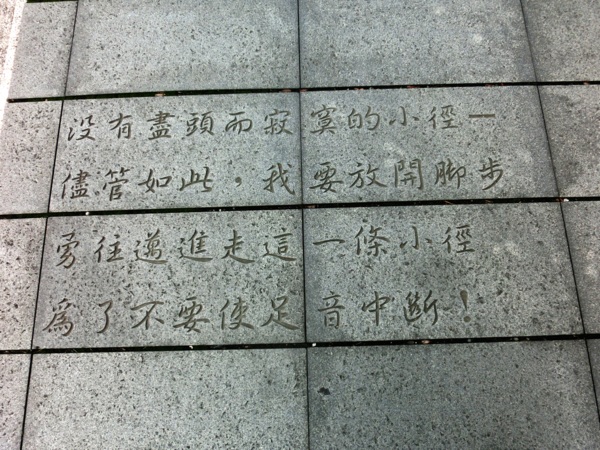 没有盡頭而寂寞的小徑一
儘管如此，我要放開脚步
勇往邁進走這一條小徑
為了不要使足音中斷！